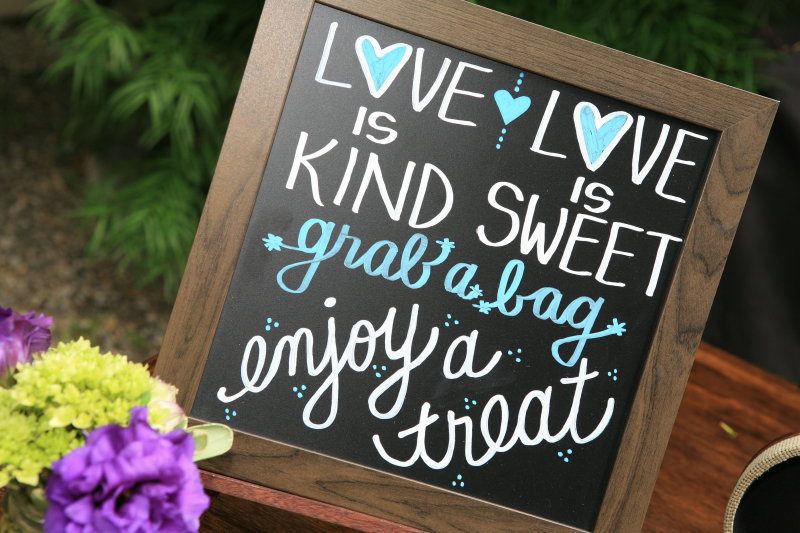 LOVE LOVE
IS IS
KIND SWEET
grab a bag
enjoy a
treat